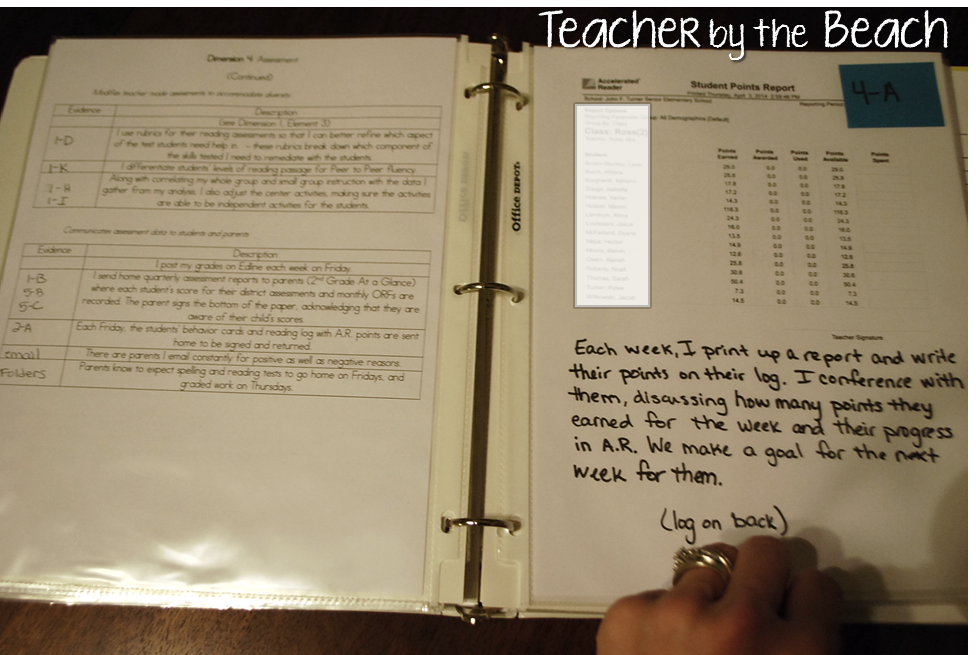 Teacher by the Beach
Dimension 4: Assessment
(Continued)
Modifies teacher made assessments to accommodate diversity
Evidence Description
(see Dimension 1, Element 3)
1-D I use rubrics for their reading assessments so that I can better refine which aspect
of the test students need help in. - these rubrics break down which component of
the skills tested I need to remediate with the students.
1-K I differentiate students' levels of reading passage for Peer to Peer fluency.
Along with correlating my whole group and small group instruction with the data I
gather from my analysis, I also adjust the center activities, making sure the activities
1-I are able to be independent activities for the students.
Communicates assessment data to students and parents
Evidence Description
I post my grades on Edline each week on Friday.
1-B I send home quarterly assessment reports to parents (2nd Grade At a Glance)
5-B where each student's score for their district assessments and monthly ORFs are
5-C recorded. The parent signs the bottom of the paper, acknowledging that they are
aware of their child's scores.
2-A Each Friday, the students' behavior cards and reading log with A.R. points are sent
home to be signed and returned.
email There are parents I email constantly for positive as well as negative reasons.
Folders Parents know to expect spelling and reading tests to go home on Fridays, and
graded work on Thursdays.
Office DEPOT.
Accelerated
Reader
Student Points Report
Printed Thursday, April 3, 2014
School: John F. Turner Senior Elementary School Reporting Period
4-A
Points Points Points Points Points
Earned Awarded Used Available Spent
29.0 0.0 0.0 29.0
25.8 0.0 0.0 25.8
17.8 0.0 0.0 17.8
17.2 0.0 0.0 17.2
14.3 0.0 0.0 14.3
116.3 0.0 0.0 116.3
24.3 0.0 0.0 24.3
16.0 0.0 0.0 16.0
13.5 0.0 0.0 13.5
14.9 0.0 0.0 14.9
12.6 0.0 0.0 12.6
25.8 0.0 0.0 25.8
30.6 0.0 0.0 30.6
50.4 0.0 0.0 50.4
7.3 0.0 0.0 7.3
14.5 0.0 0.0 14.5
Teacher Signature
Each week, I print up a report and write
their points on their log. I conference with
them, discussing how many points they
earned for the week and their progress
in A.R. We make a goal for the next
week for them.
(log on back)